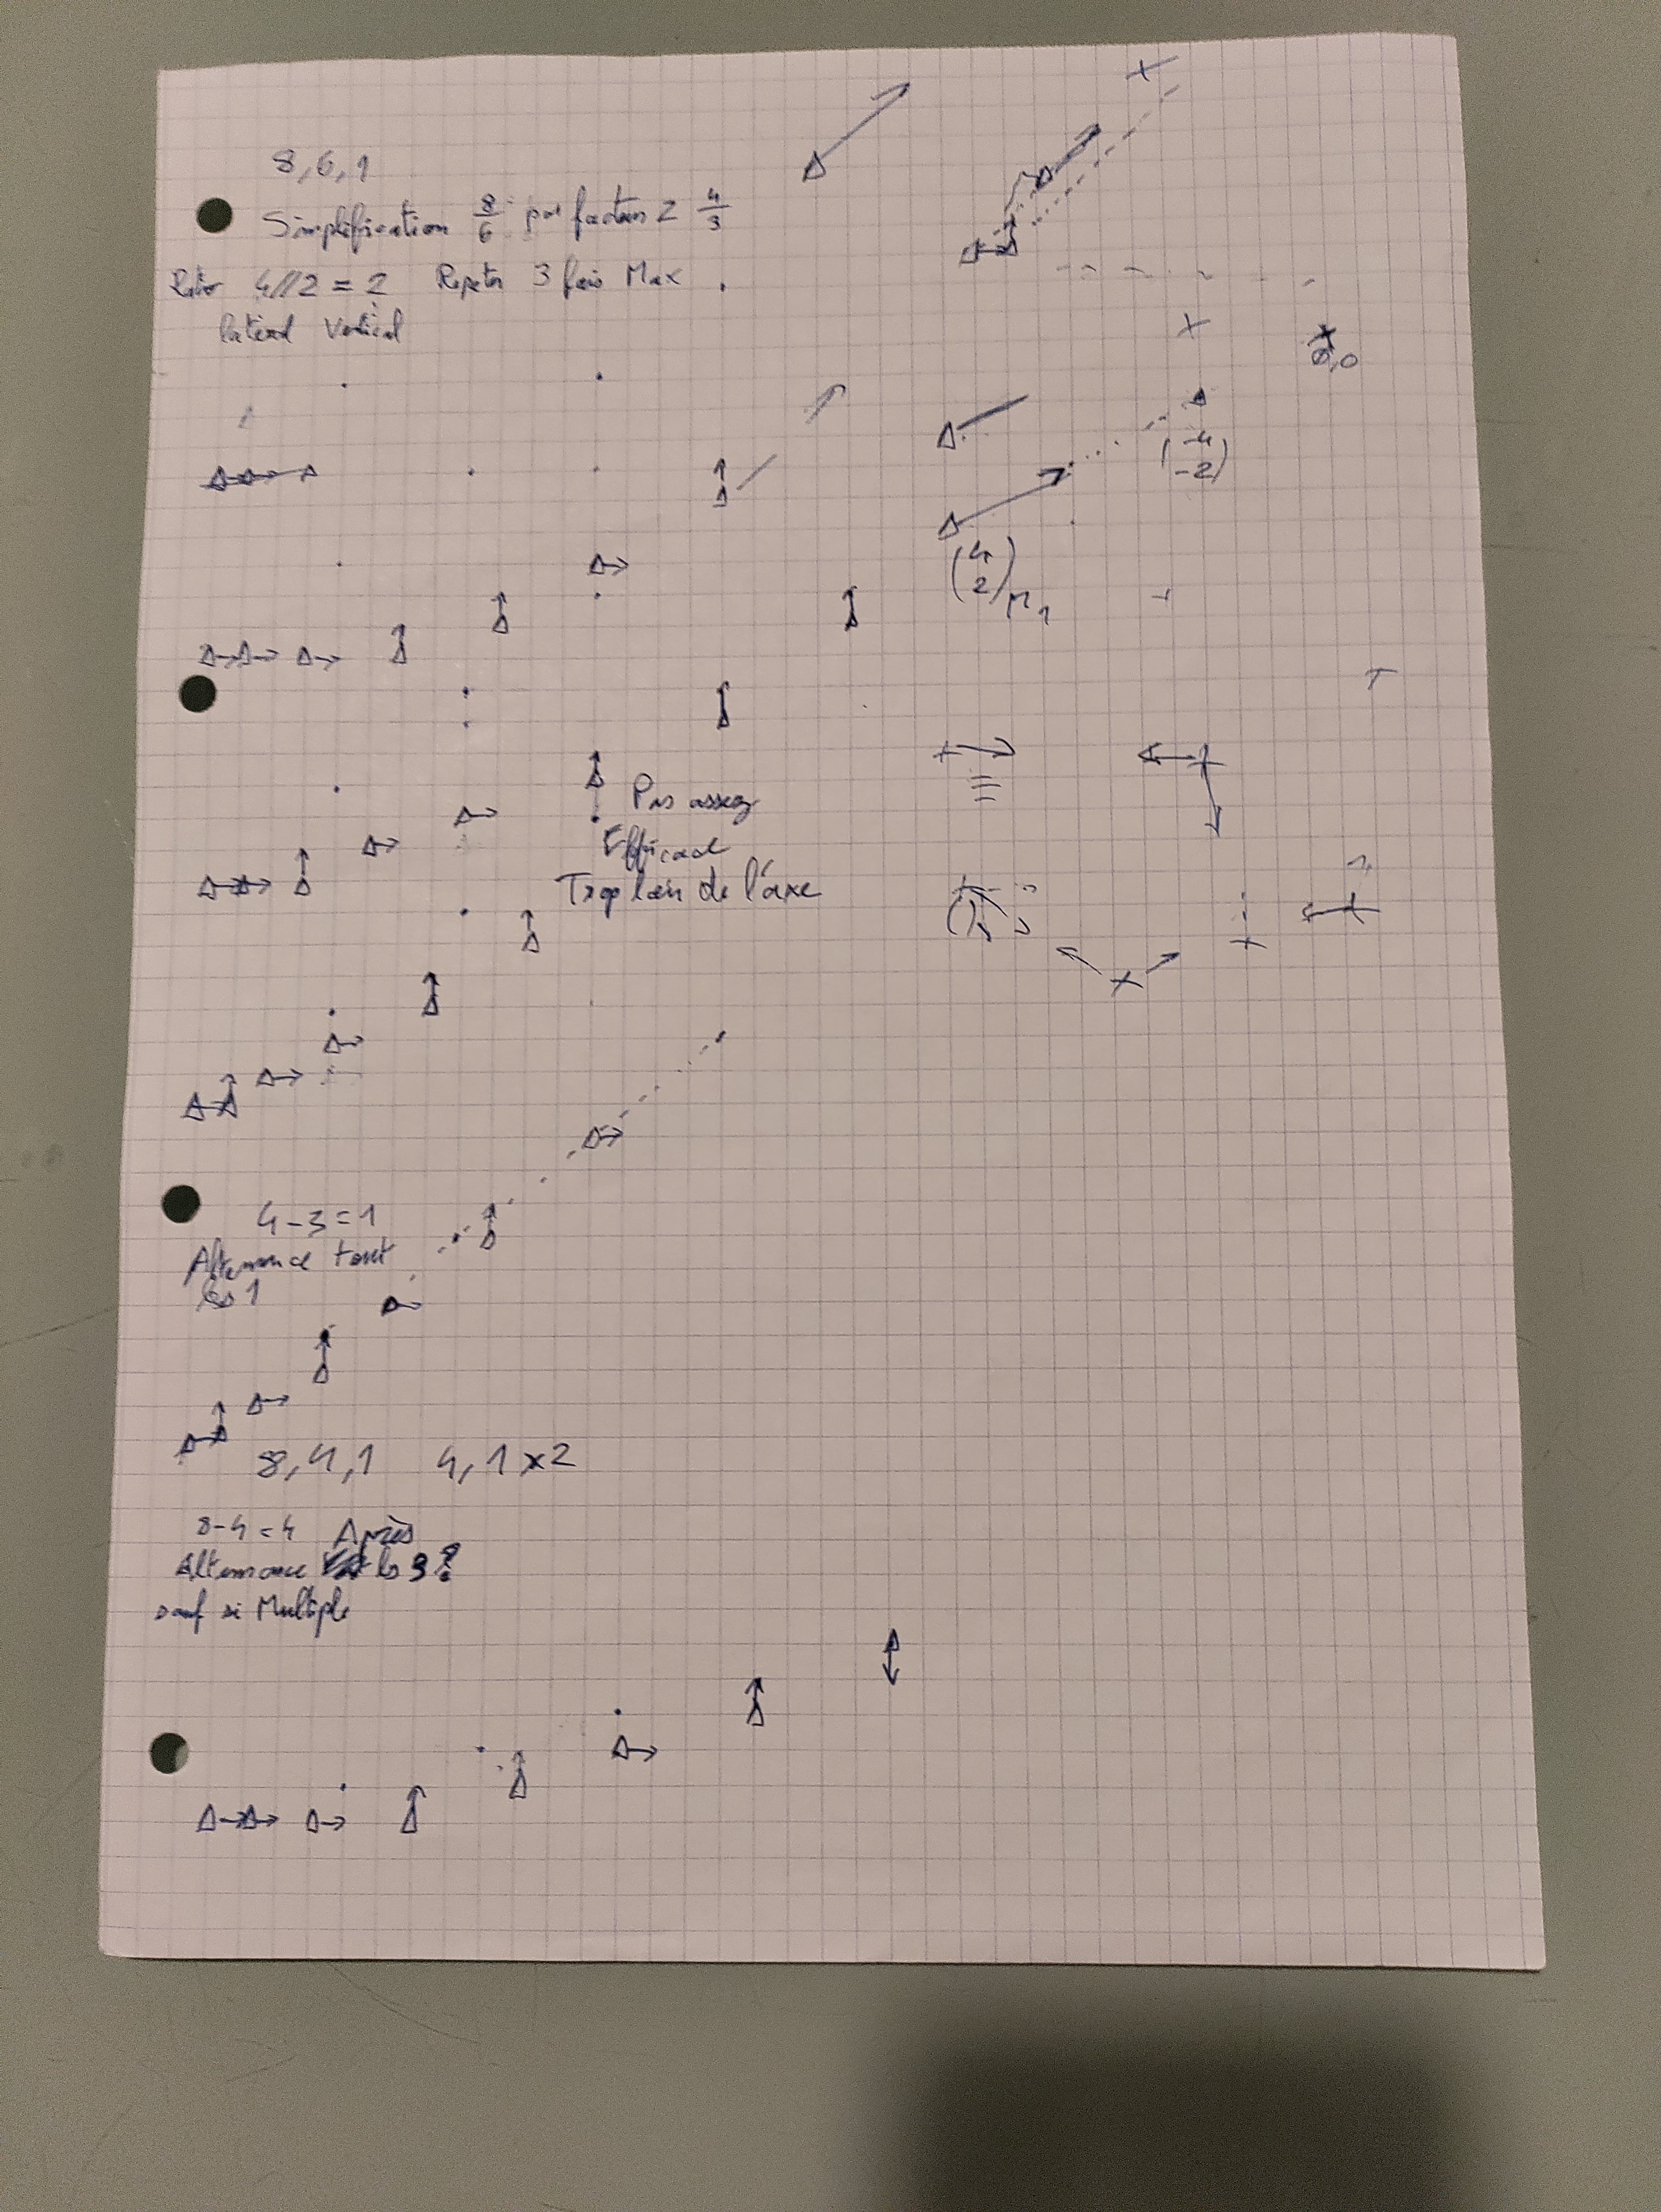 8, 6, 1
Simplification 8/6 par facteur 2 4/3
Ratio 4//2 = 2 Repeter 3 fois Max
latéral vertical
0,0
(-4
-2)
(4
2) M1
Pas assez
Efficace
Trop loin de l'axe
4-3=1
Alternance tout
les 1
8, 4, 1 4, 1 x2
8-4=4 Après
Alternance les 3?
sauf si Multiple